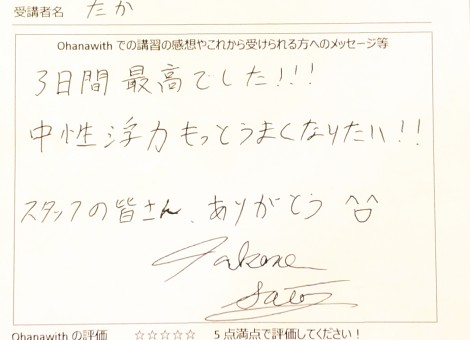 受講者名 たか
Ohanawith での講習の感想やこれから受けられる方へのメッセージ等
3日間 最高でした!!!
中性浮力 もっとうまくなりたい!!
スタッフの皆さん、ありがとう
Ohanawith の評価 ☆☆☆☆☆ 5点満点で評価してください!